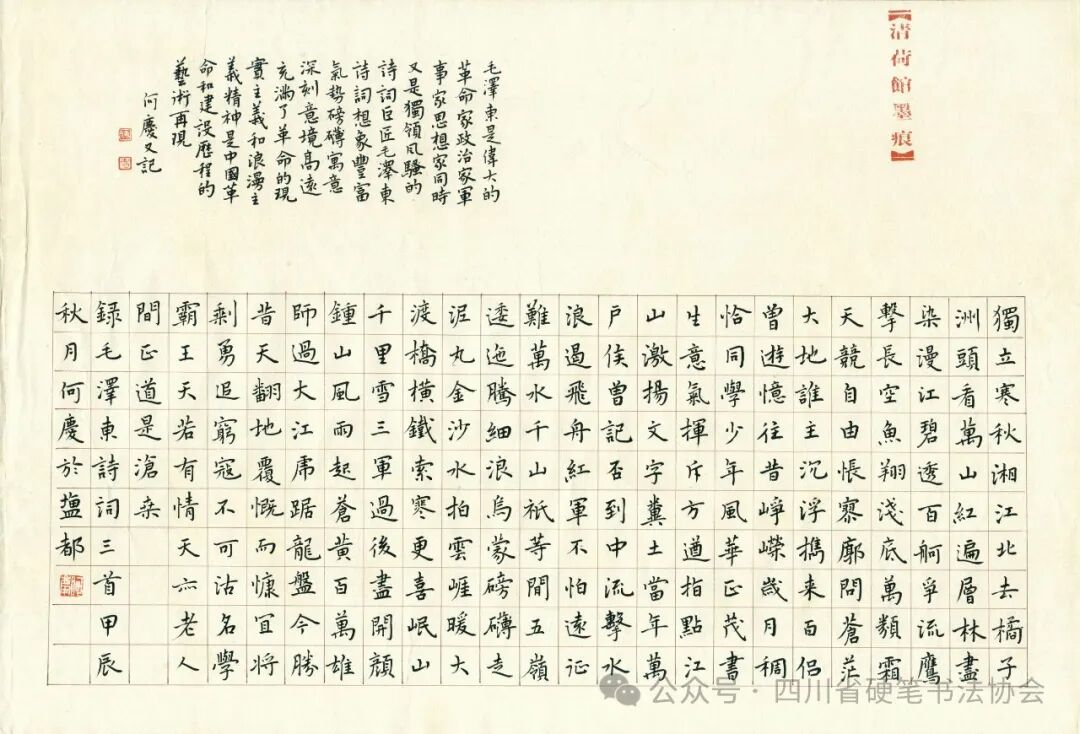 【清荷館墨痕】
毛澤東是偉大的
革命家政治家軍
事家思想家同時
又是獨領風騷的
詩詞巨匠毛澤東
詩詞想象豐富
氣勢磅礴寓意
深刻意境高遠
充滿了革命的現
實主義和浪漫主
義精神是中國革
命和建設歷程的
藝術再現
何慶又記
獨立寒秋湘江北去橘子
洲頭看萬山紅遍層林盡
染漫江碧透百舸爭流鷹
擊長空魚翔淺底萬類霜
天競自由悵寥廓問蒼茫
大地誰主沉浮攜来百侣
曾遊憶往昔崢嶸歲月稠
恰同學少年風華正茂書
生意氣揮斥方遒指點江
山激揚文字糞土當年萬
户侯曾記否到中流擊水
浪遏飛舟紅軍不怕遠征
難萬水千山衹等間五嶺
逶迤騰細浪烏蒙磅礴走
泥丸金沙水拍雲崖暖大
渡橋橫鐵索寒更喜岷山
千里雪三軍過後盡開顔
鍾山風雨起蒼黄百萬雄
師過大江虎踞龍盤今勝
昔天翻地覆慨而慷宜將
剩勇追窮寇不可沽名學
霸王天若有情天亦老人
間正道是滄桑
録毛澤東詩詞三首甲辰
秋月何慶於鹽都
公众号·四川省硬笔书法协会